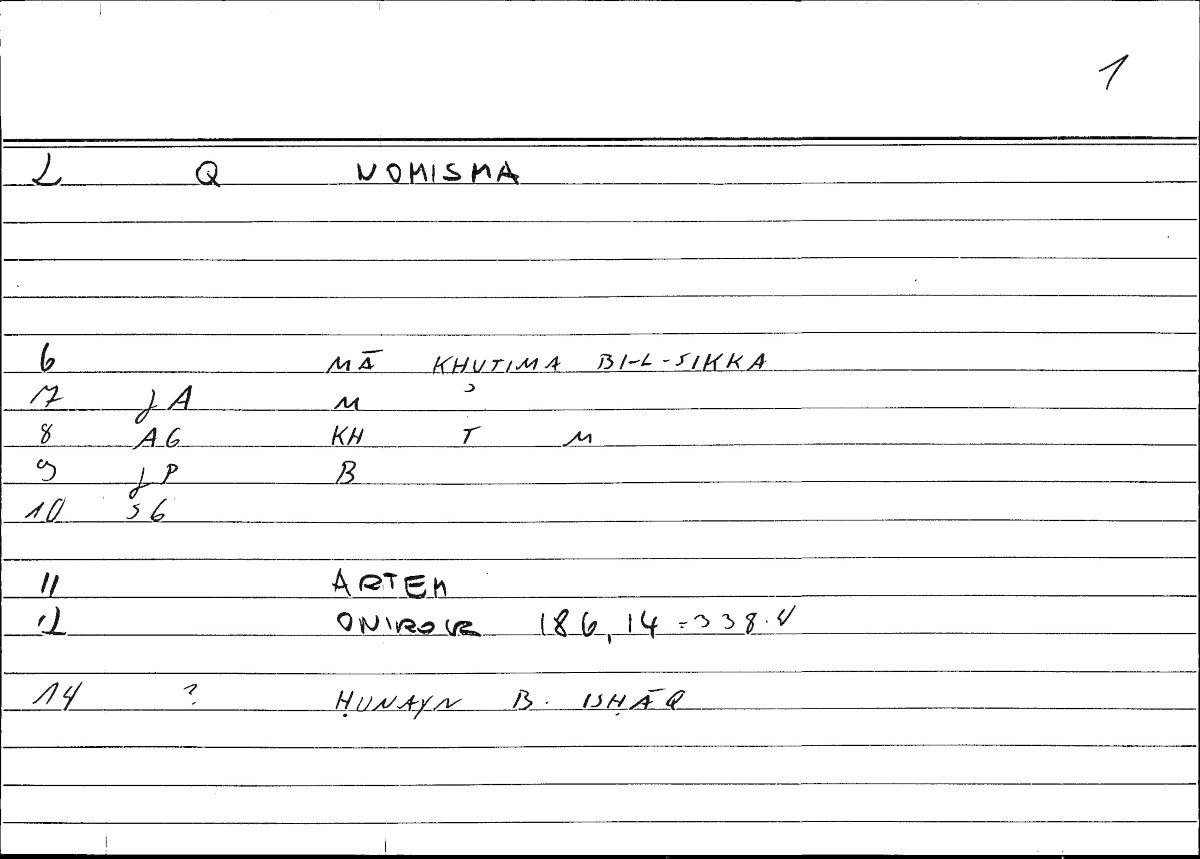 1
2 Q NOMISMA
6 MĀ KHUTIMA BI-L-SIKKA
7 JA M ʾ
8 AG KH T M
9 JP B
10 SG
11 ARTEM
12 ONIROCR 186,14 = 338.4
14 ? ḤUNAYN B. ISḤĀQ